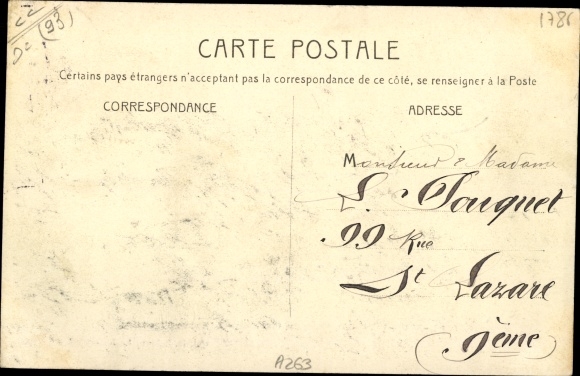 (93)
1786
CARTE POSTALE
Certains pays étrangers n'acceptant pas la correspondance de ce côté, se renseigner à la Poste
CORRESPONDANCE
ADRESSE
Monsieur & Madame
L. Fouquet
99 Rue
St Lazare
9ème
A263